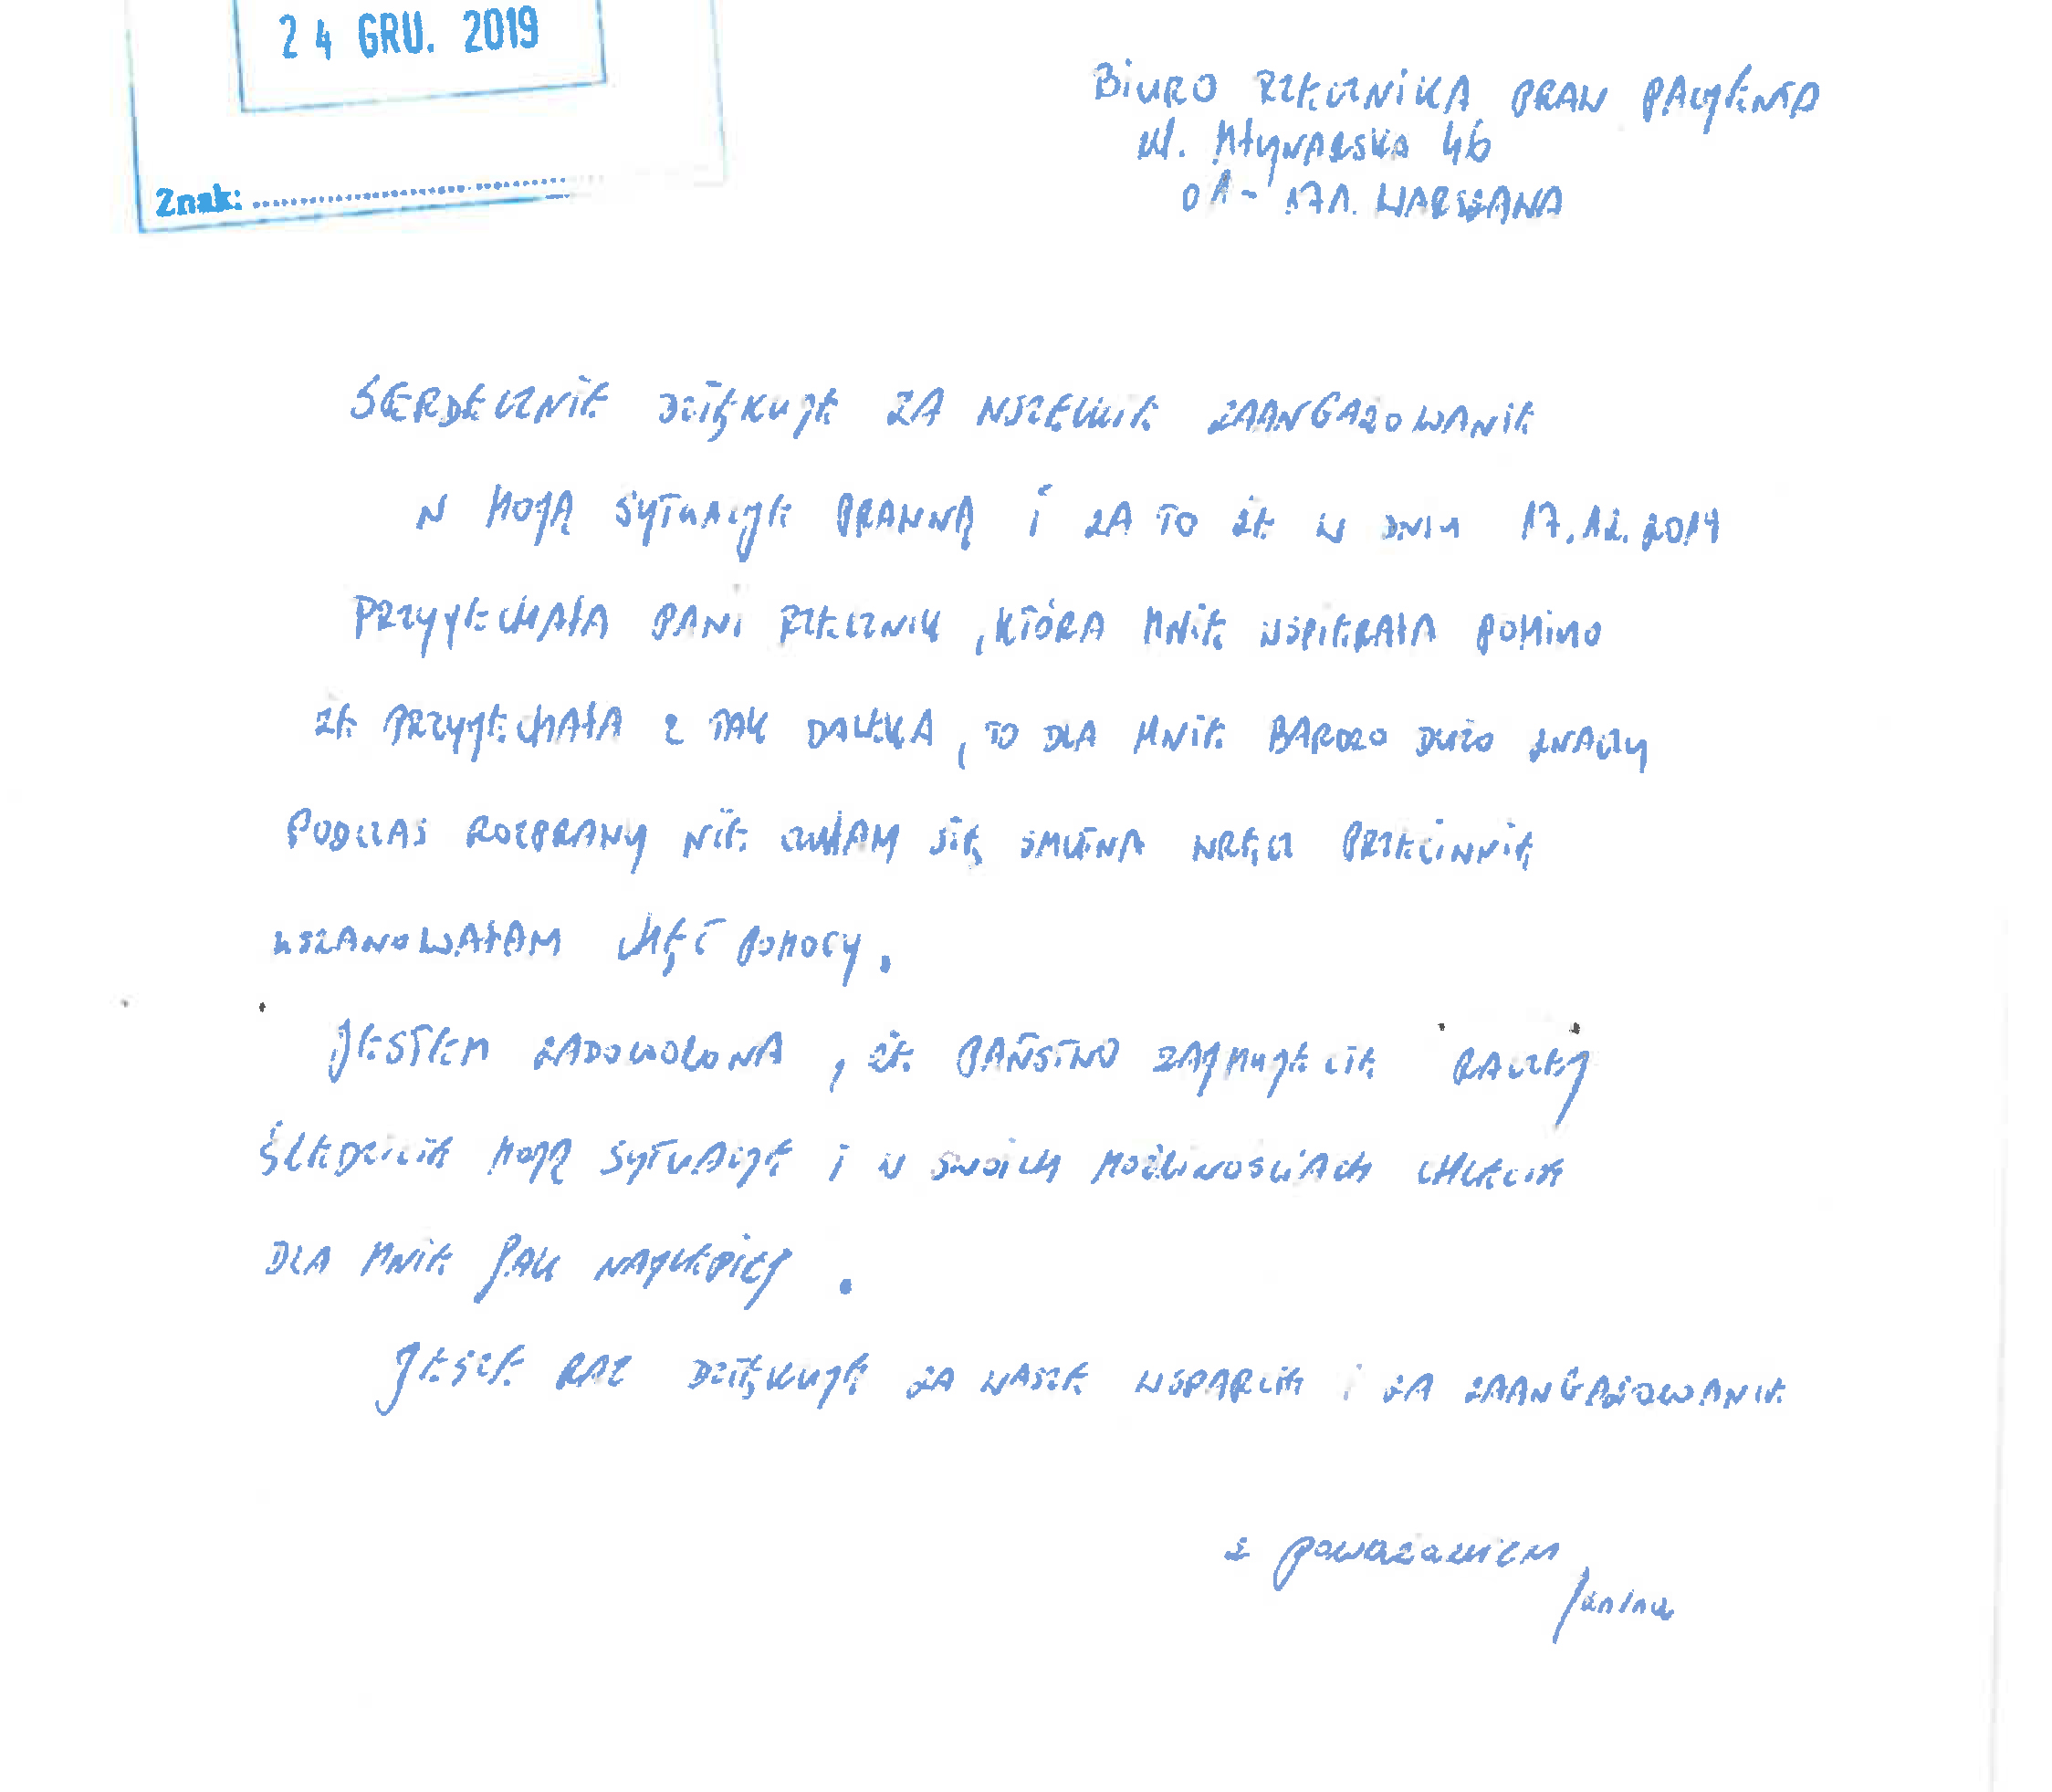 24 GRU. 2019
Znak:
BIURO RZECZNIKA PRAW PACJENTA
ul. MŁYNARSKA 46
01-171 WARSZAWA
SERDECZNIE DZIĘKUJE ZA WSZELKIE ZAANGAŻOWANIE
W MOJĄ SYTUACJE PRAWNĄ I ZA TO ŻE W DNIU 17.12.2019
PRZYJECHAŁA PANI RZECZNIK, KTÓRA MNIE WSPIERAŁA POMIMO
ŻE PRZYJECHAŁA Z TAK DALEKA, TO DLA MNIE BARDZO DUŻO ZNACZY
PODCZAS ROZPRAWY NIE CZUŁAM SIĘ SMUTNA WRĘCZ PRZECIWNIE
USZANOWAŁAM CHĘĆ POMOCY.
JESTEM ZADOWOLONA, ŻE PAŃSTWO ZAJMUJECIE RACZEJ
ŚLEDZICIE MOJĄ SYTUACJE I W SWOICH MOŻLIWOŚCIACH CHCECIE
DLA MNIE JAK NAJLEPIEJ.
JESZCZE RAZ DZIĘKUJE ZA WASZE WSPARCIE I ZA ZAANGAŻOWANIE
z poważaniem
Janina